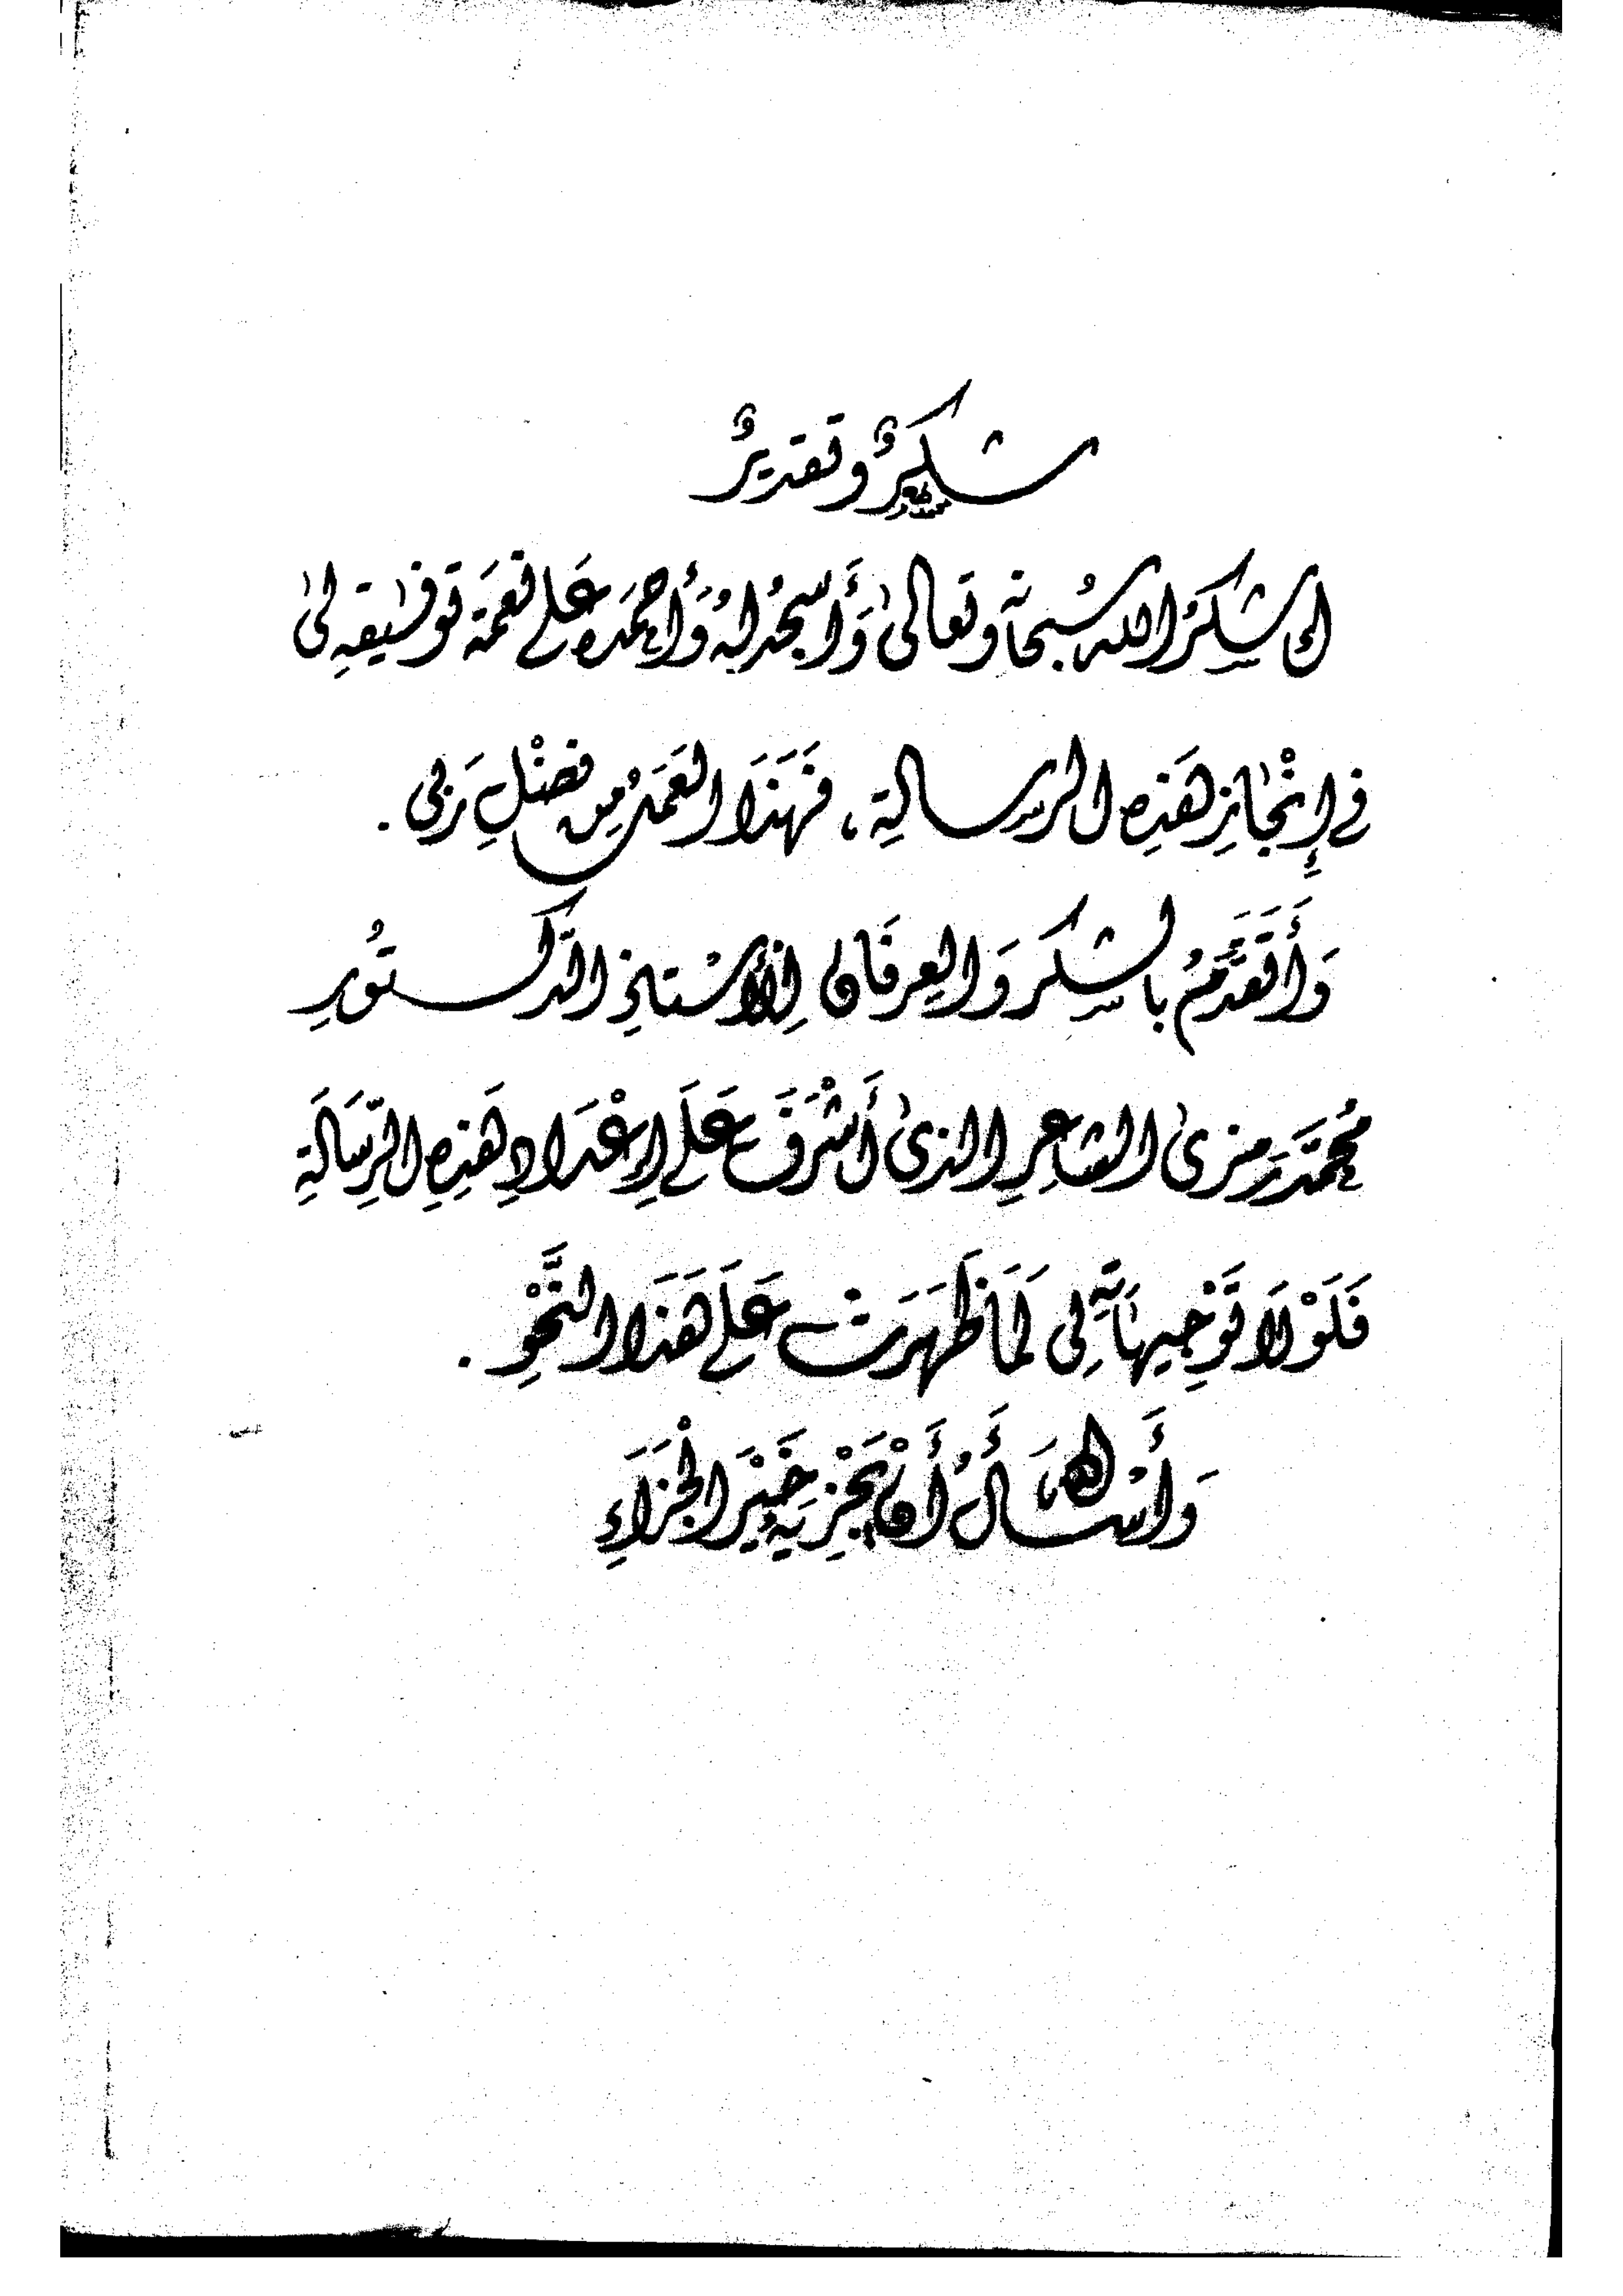 شكرٌ وتقديرٌ
إني أشكرُ الله سُبحانه وتعالى وَأَسجُدُ لهُ وَأَحمَده عَلى نعمَة توفيقهِ لى
فى إِنْجَازِ هَذِه الرسالة، فَهَذَا العَمَلُ مِن فضْلِ رَبى.
وَأَتَقَدَّمُ بالشكر وَالعِرفَان لِلأُسْتاذِ الدَّكتُورِ
مُحمَّد رَمزى الشاعِرِ الذى أَشْرَفَ عَلَى إِعْدَادِ هَذِهِ الرِّسَالَةِ
فَلَوْلَا تَوْجِيهَاتِه لِى لَمَا ظَهَرَت عَلَى هَذَا النَّحْوِ.
وَأَسْأَلُ اللهَ أَنْ يَجْزِيَه خَيْرَ الْجَزَاءِ